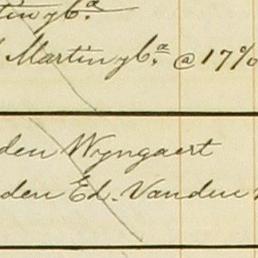 tin y Cª.
Martin y Cª. @ 17%
den Wyngaert
den Ed. Vanden